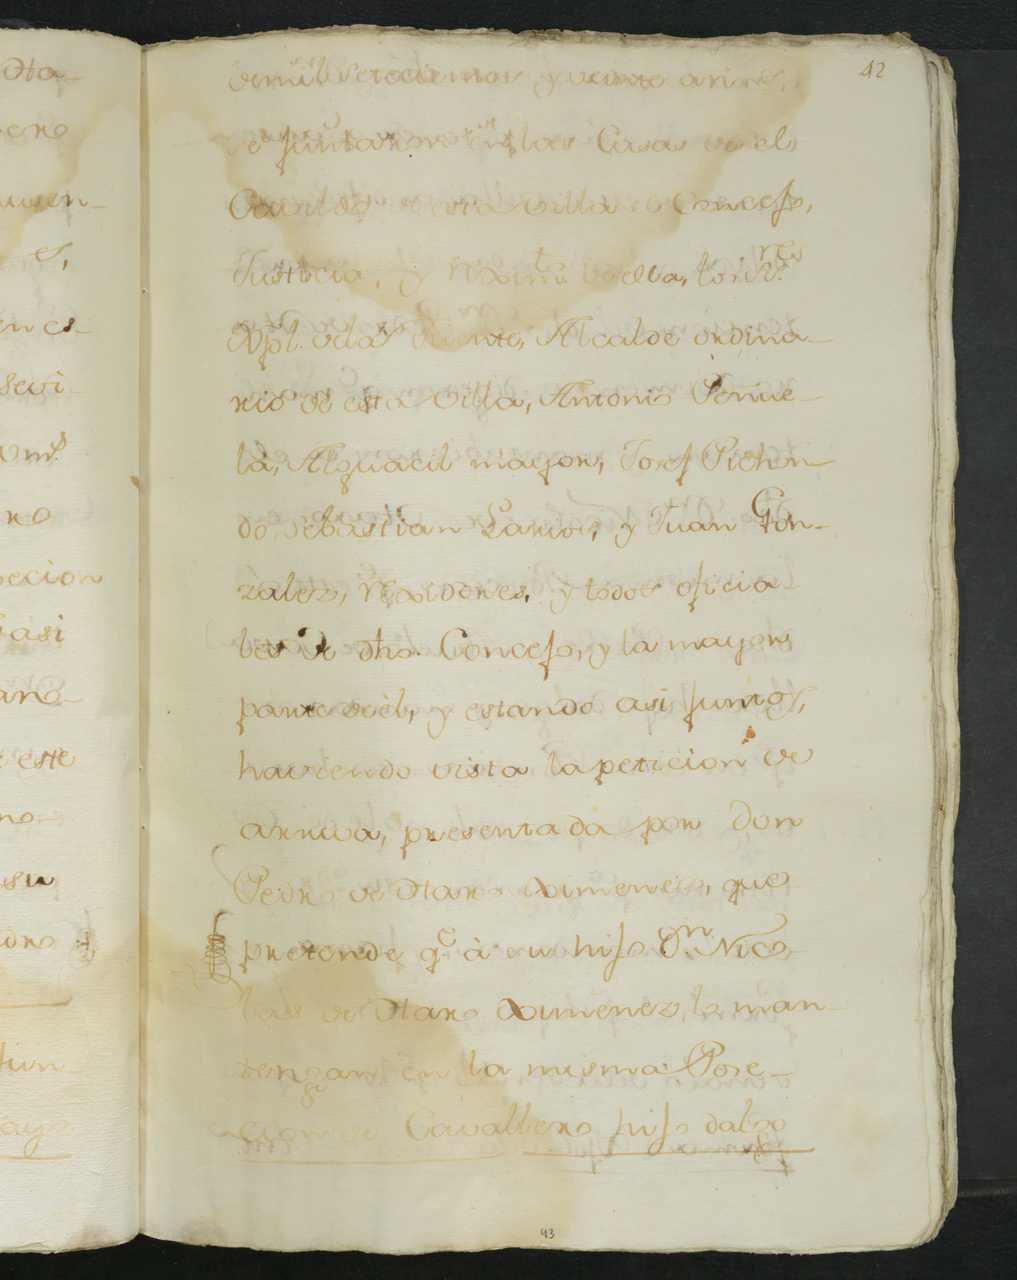 42
de mil setecientos y veinte años,
se juntaron en las Casas de el
Cavildo de esta villa el Concejo,
Justicia, y Reximto. de ella, los Sres.
Alcalde ordina-
rio de esta Villa, Antonio Peñue-
la, Alguacil mayor, Josef Pichon-
do, Sebastian Larios, y Juan Gon-
zalez, rexidores, y todos oficia-
les de dho. Concejo, y la mayor
parte de él, y estando asi juntos,
haviendo vista la peticion de
arriva, presentada por don
Pedro de Otaro Ximenez, que
pretende qe. à su hijo Dn. Nico-
las de Otaro Ximenez, lo man-
tengan en la misma Pose-
cion de Cavallero hijo dalgo
43